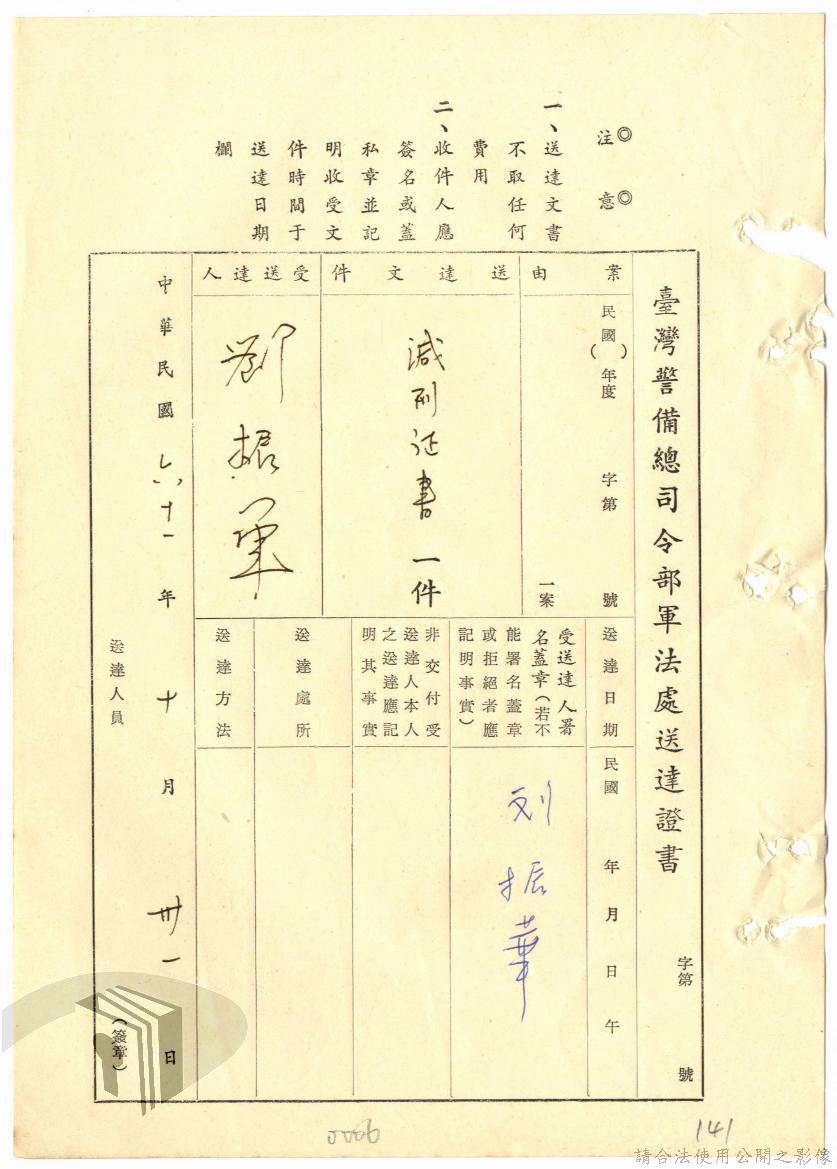 臺灣警備總司令部軍法處送達證書
字第 號
◎注意◎
一、送達文書
不取任何
費用
二、收件人應
簽名或蓋
私章並記
明收受文
件時間于
送達日期
欄
案由
民國( )年度 字第 號
一案
送達文件
減刑证書一件
受送達人
劉振軍
送達日期
民國 年 月 日 午
受送達人署
名蓋章(若不
能署名蓋章
或拒絕者應
記明事實)
刘振華
非交付受
送達人本人
之送達應記
明其事實
送達處所
送達方法
中華民國六十一年十月卅一日
送達人員
(簽章)
0006
141
請合法使用公開之影像